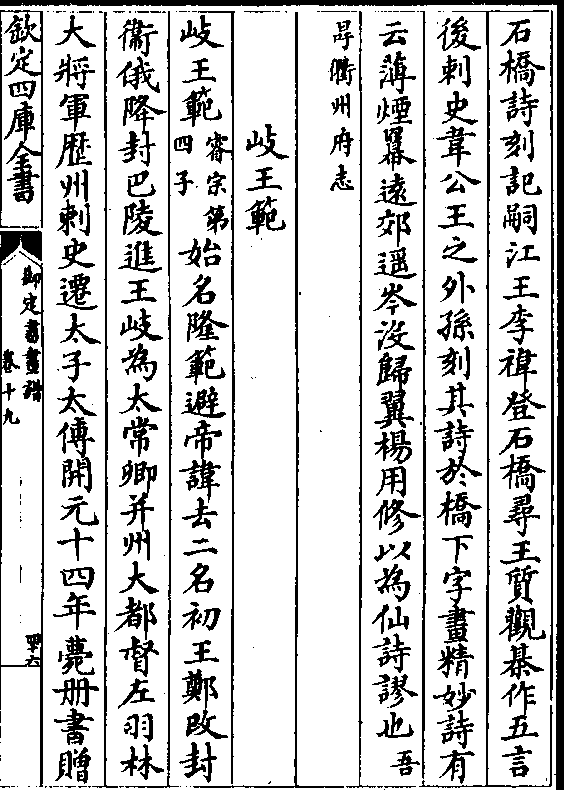 石橋詩刻記嗣江王李禕登石橋尋王質觀棊作五言
後刺史韋公王之外孫刻其詩於橋下字畫精妙詩有
云薄煙羃遠郊遥岑沒歸翼楊用修以為仙詩謬也吾
㝵衢州府志
岐王範
岐王範睿宗第四子始名隆範避帝諱去二名初王鄭改封
衞俄降封巴陵進王岐為太常卿并州大都督左羽林
大將軍歴州刺史遷太子太傅開元十四年薨册書贈
欽定四庫全書
御定書畫譜
卷十九
四十六